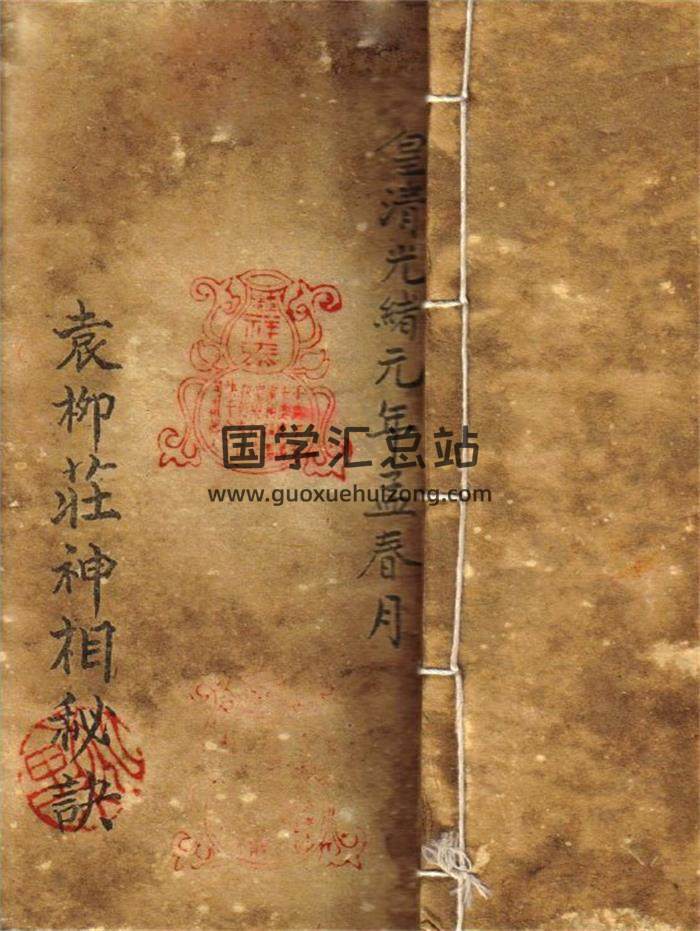 皇清光緒元年孟春月
袁柳莊神相秘訣
国学汇总站
www.guoxuehuizong.com